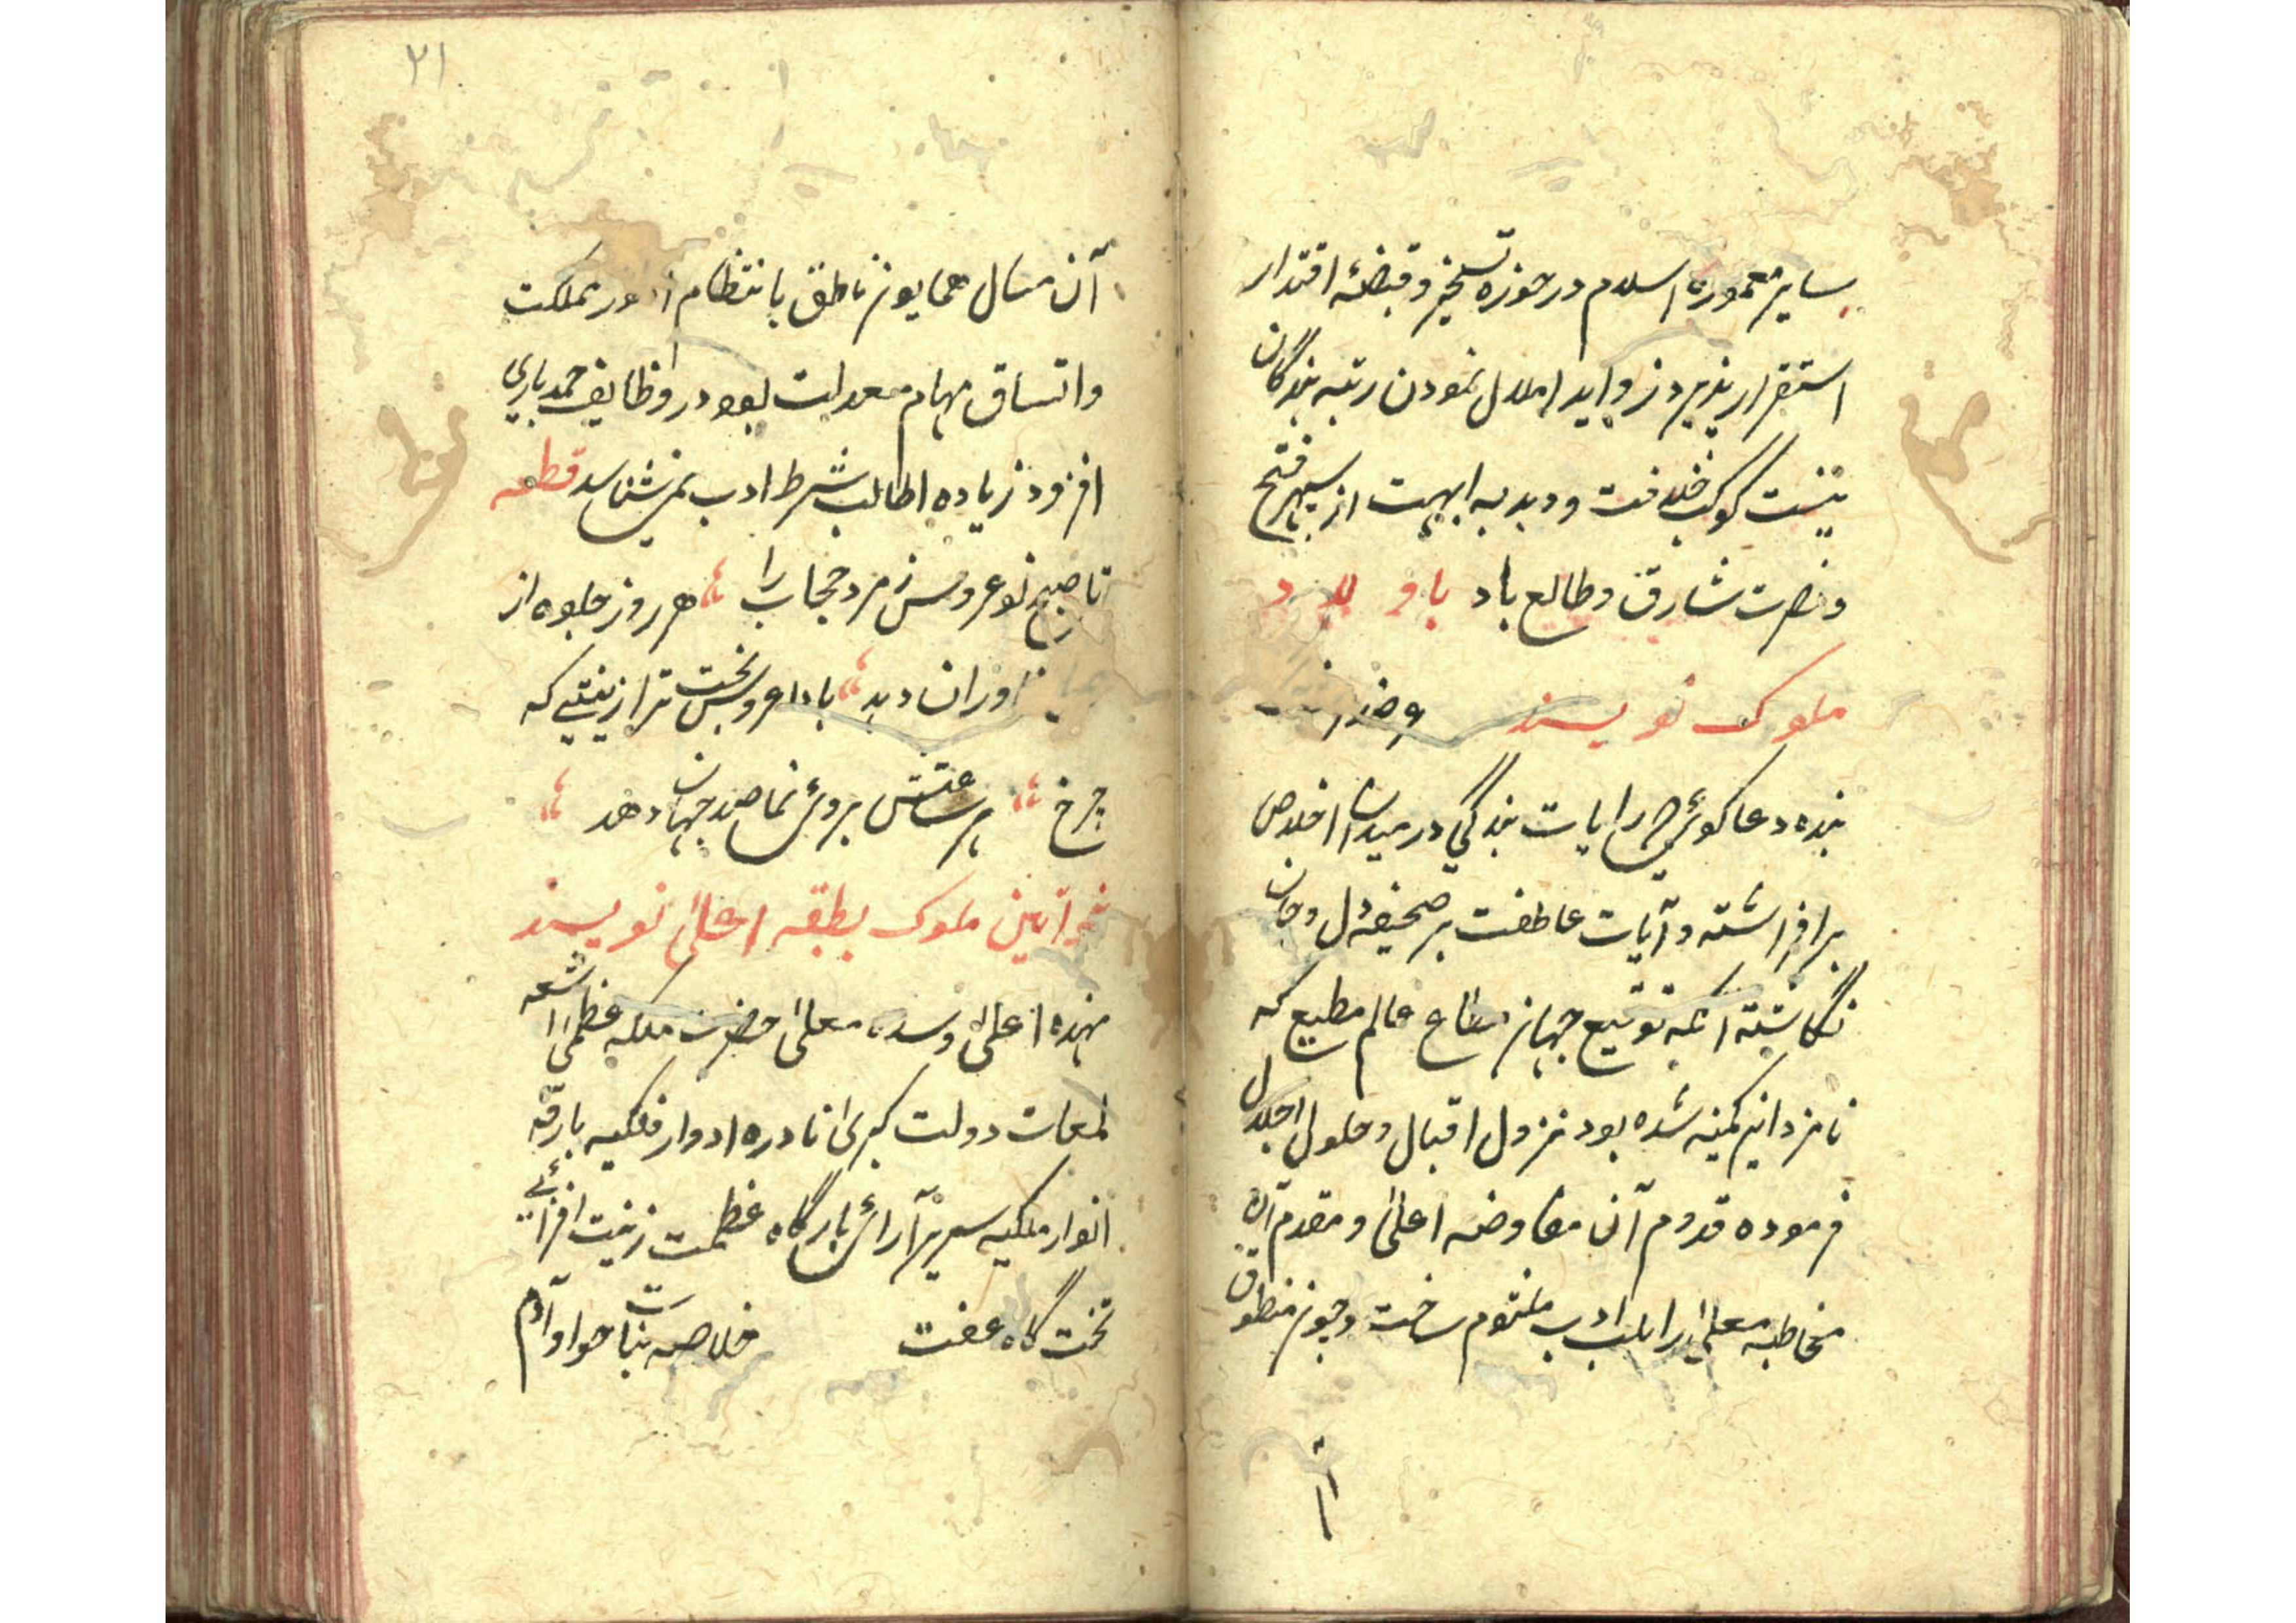 سایر معموره اسلام در حوزه تسخیر و قبضهٔ اقتدار
استقرار پذیرد زواید املال نمودن رتبه بندگان
نیست کوکب خلافت و دبدبه ابهت از سپهر فتح
و نصرت شارق و طالع باد باولاد
ملوک نویسند
بنده دعاکوئی رایات بندگی در میدان اخلاص
برافراشته و آیات عاطفت بر صحیفهٔ دل و جان
نگاشته آنکه توقیع جهان مطاع عالم مطیع که
نامزد این کمینه شده بود نزول اقبال و حلول اجلال
فرموده قدوم آن مفاوضه اعلی و مقدم آن
مخاطبه معلی را بلب ادب ملثوم ساخت و چون منطوق
آن
۲۱
آن مثال همایون ناطق بانتظام امور مملکت
و اتساق مهام معدلت بود در وظایف حمد باری
افزود زیاده اطالب شرط ادب نمیشناسد قطعه
تا صبح نوعروس زمرد حجاب را هر روز جلوه از
خاوران دهد بادا عروس بخت ترا زینتی که
چرخ هر ساعتش بروی نما صد جهان دهد
خواتین ملوک بطبقه اعلی نویسند
مهده اعلی و سده معلی حضرت ملکه عظمی اشعه
لمعات دولت کبری نادره ادوار فلکیه بارقه
انوار ملکیه سریر آرائی بارگاه عظمت زینت افزائی
تخت گاه عفت خلاصه بنات حوا و آدم